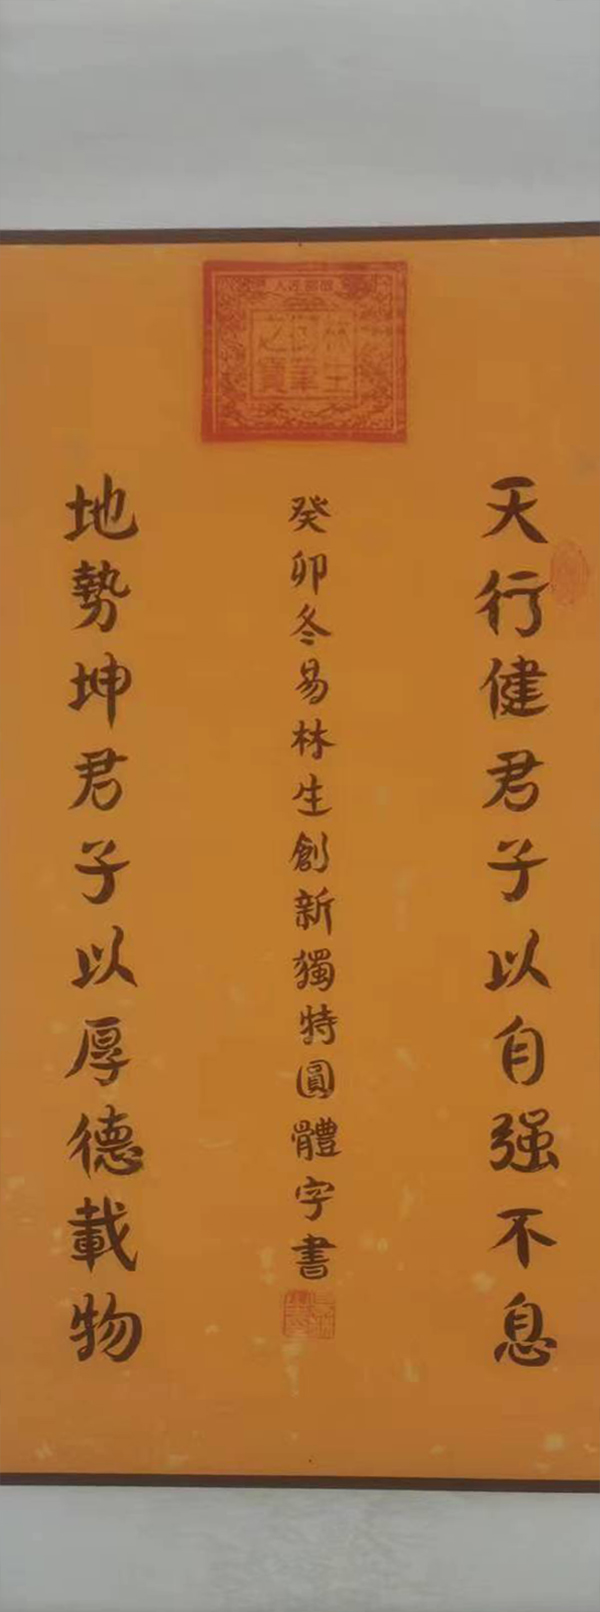 天行健君子以自强不息
癸卯冬易林生創新獨特圓體字書
地勢坤君子以厚德載物